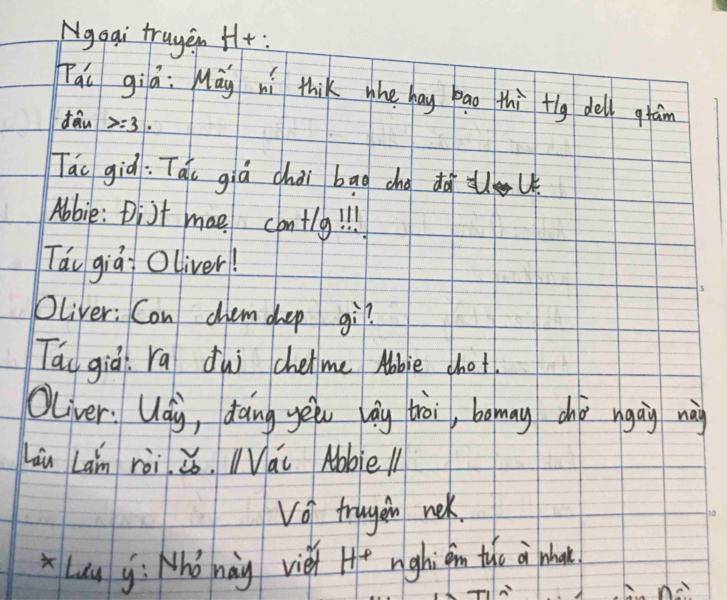 Ngoại truyện H+:
Tác giả: Mấy ní thik nhẹ hay bạo thì t/g dell qtâm
đâu >=3.
Tác giả: Tác giả chơi bạo cho đã
Abbie: Địt mae con t/g!!!
Tác giả: Oliver!
Oliver: Con chem chep gì?
Tác giả: ra đụi chetme Abbie chot.
Oliver: Uầy, đáng yêu vậy trời, bomay chờ ngày này
Lâu Lắm rồi. //Vác Abbie//
Vô truyện nek.
* Lưu ý: Nhỏ này viết H+ nghiêm túc à nhak.